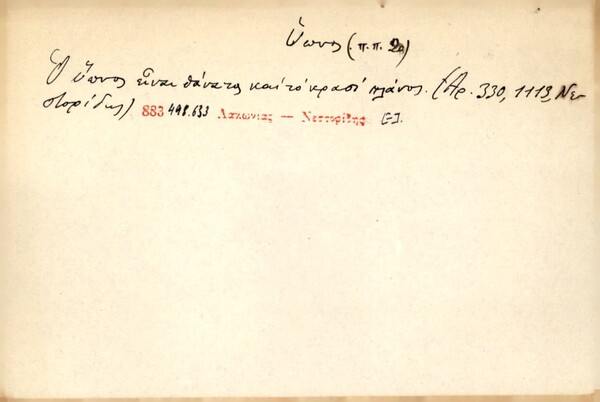 Ὕπνος (π.π. 2α)
Ὁ ὕπνος εἶναι θάνατος καί τό κρασί πλάνος. (Αρ. 330, 1113, Νε-
στορίδης) 883 448.633 Λακωνίας — Νεστορίδης